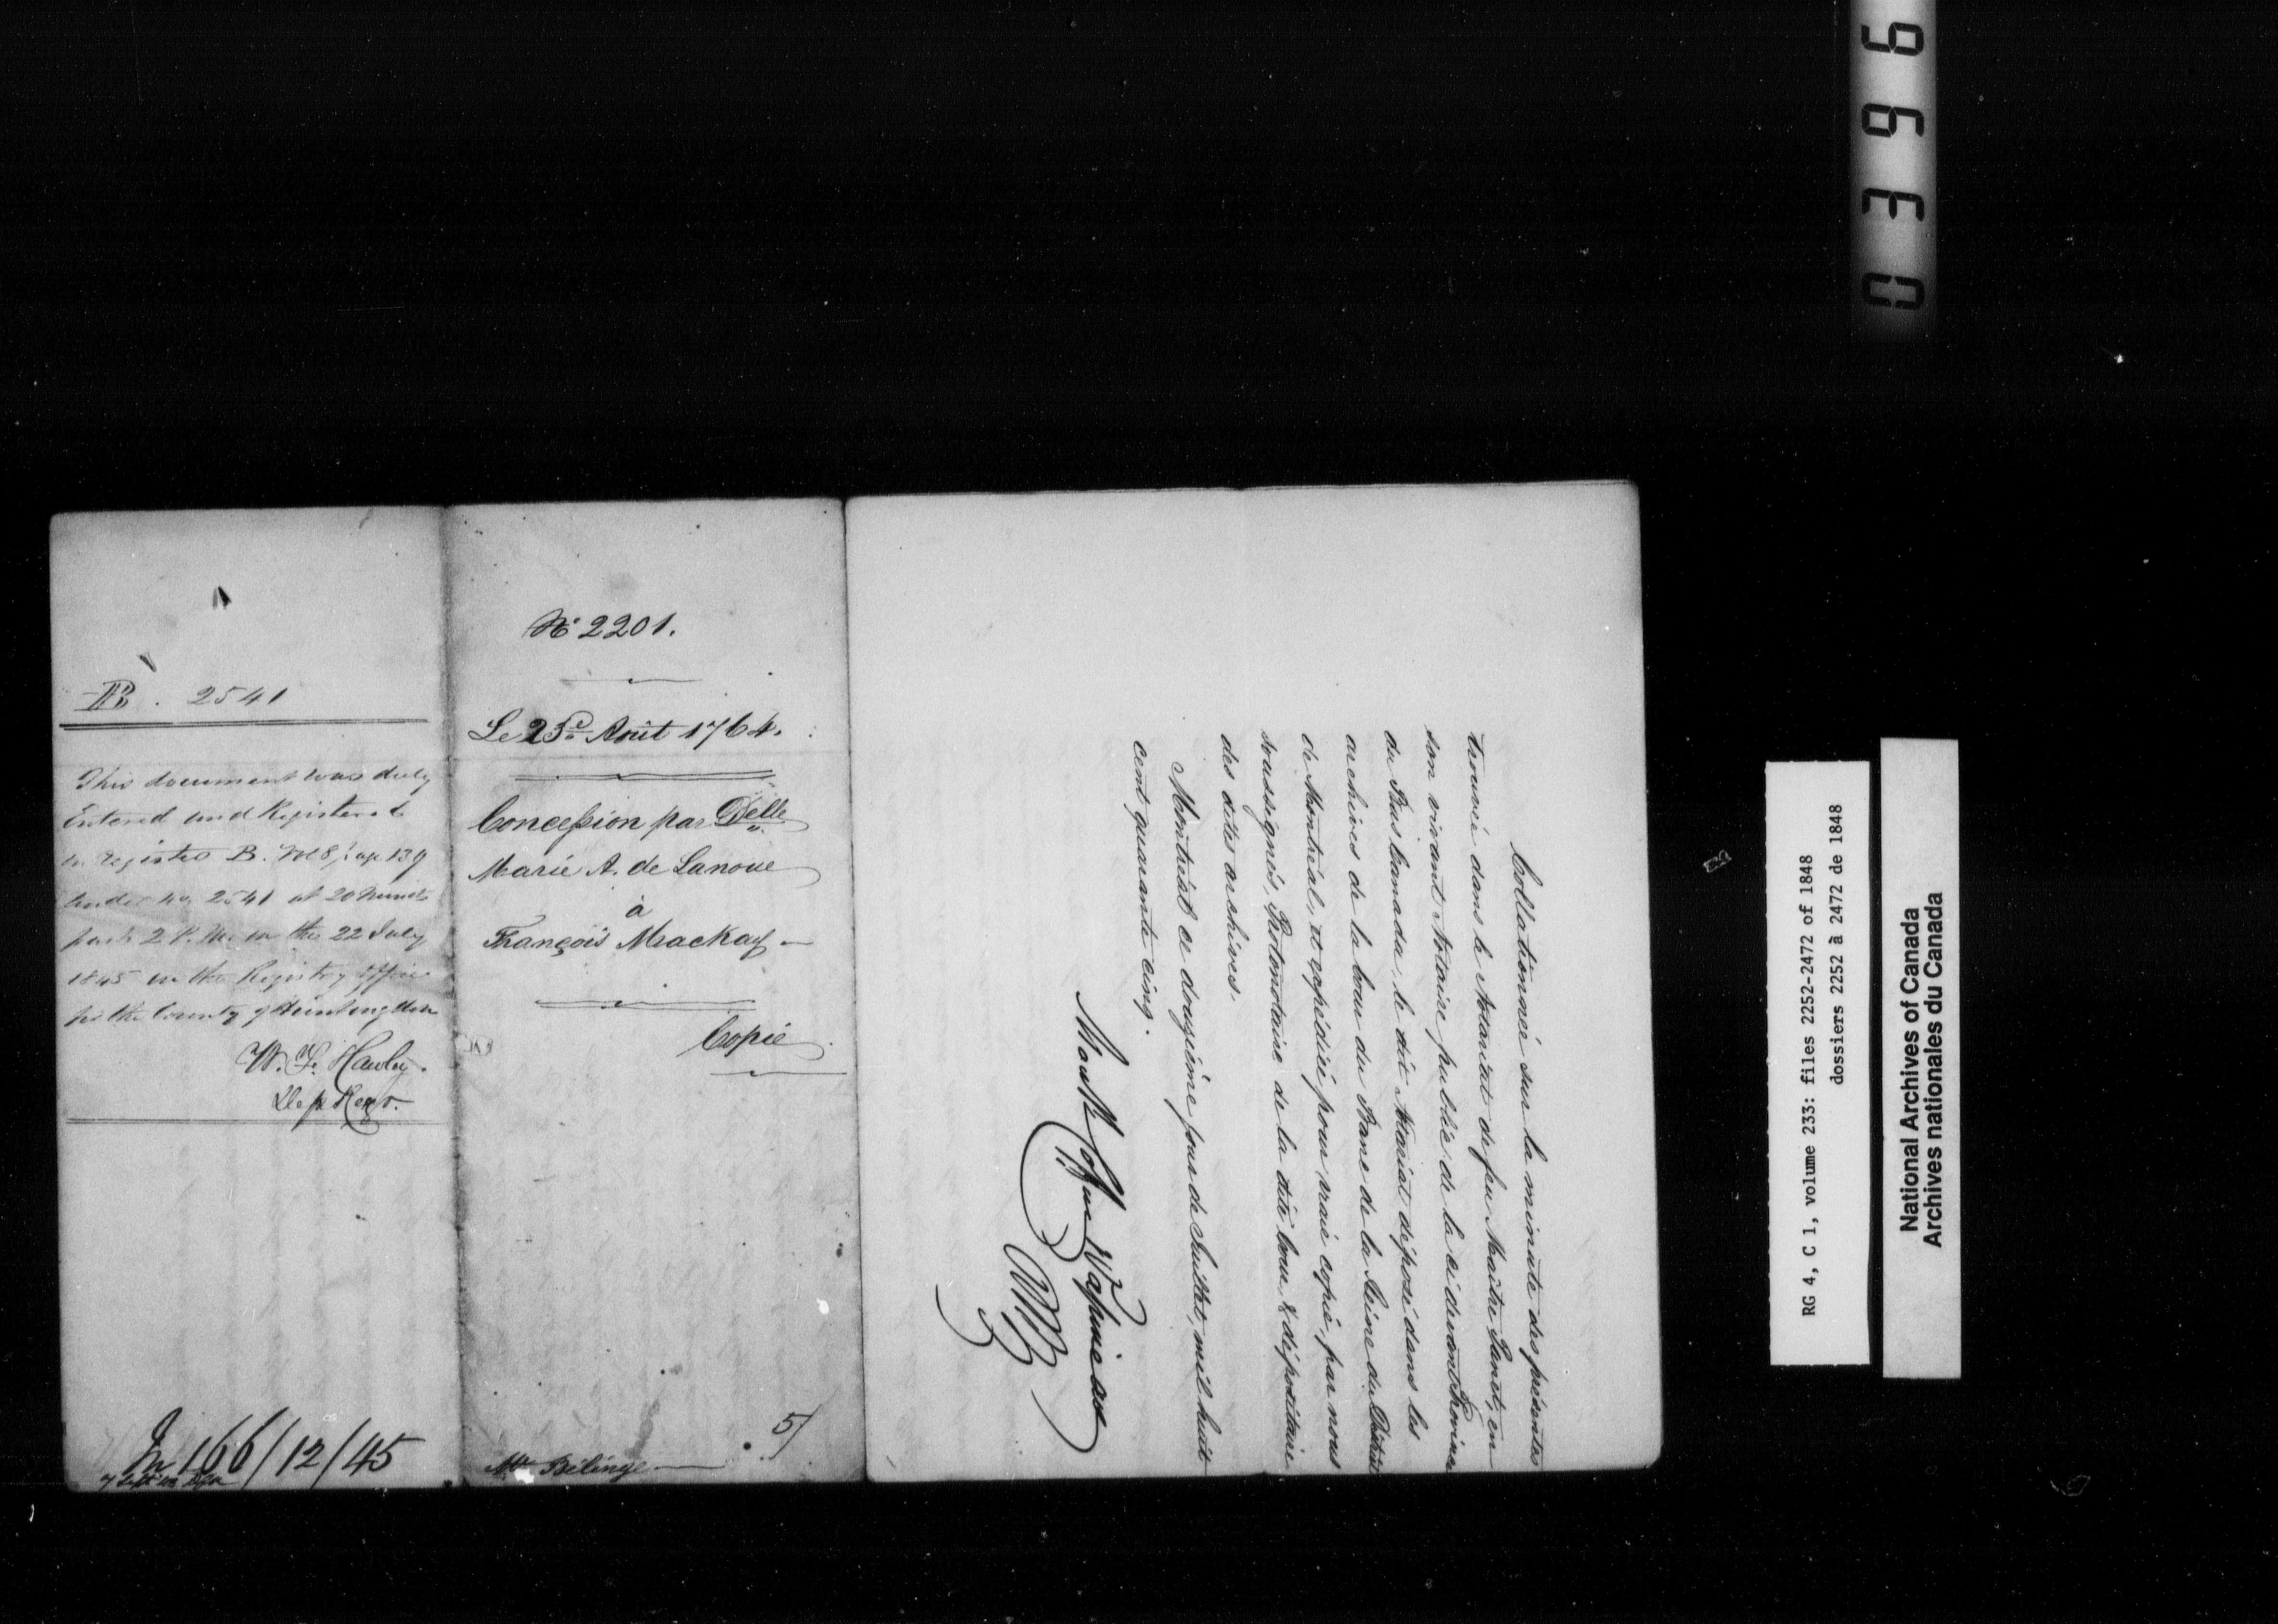 B. 2541
This document was duly
Entered and Registered
in Register B. Vol 8, Page 139
under No. 2541 at 20 minutes
past 2 P.M. on the 22 July
1845 in the Registry Office
for the County of Huntingdon
W. F. Hawley.
Dep Regr.
166/12/45
No 2201.
Le 23e Août 1764.
Concession par Delle
Marie A. de Lanoue
à
François Mackay
Copie
5/
Mr Bélinge
Collationnée sur la minute des présentes
trouvée dans le Notariat de feu Maître Panet, en
son vivant Notaire public de la ci devant Province
du Bas Canada, le dit Notariat déposé dans les
archives de la Cour du Banc de la Reine du District
de Montréal, et expédiée pour vraie copie, par nous
soussignés, Protonotaire de la dite Cour & dépositaire
des dites archives.
Montréal ce douzième jour de Juillet, mil huit
cent quarante cinq.
Monk Coffin & Papineau
0396
RG 4, C 1, volume 233: files 2252-2472 of 1848
dossiers 2252 à 2472 de 1848
National Archives of Canada
Archives nationales du Canada